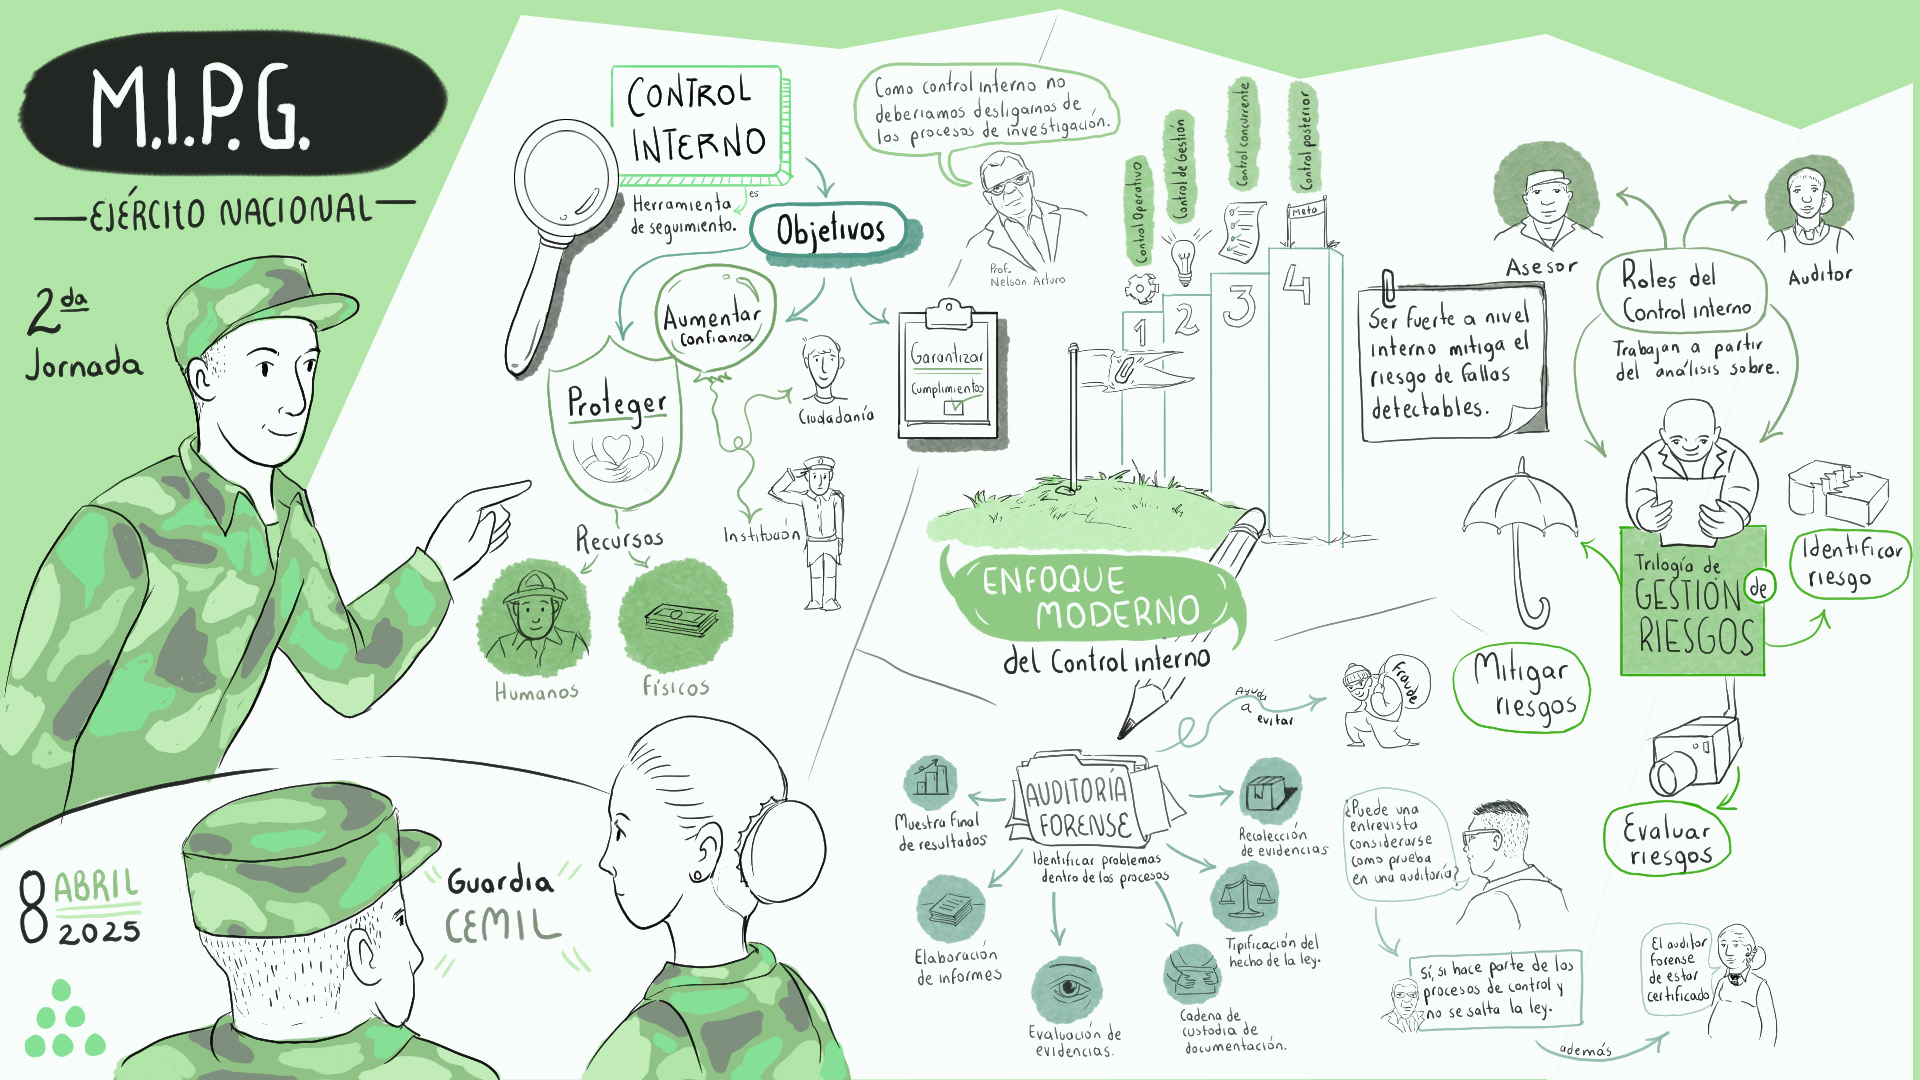 M.I.P.G.
EJÉRCITO NACIONAL
2da
Jornada
8 ABRIL
2025
Guardia
CEMIL
CONTROL
INTERNO
es
Herramienta
de seguimiento.
Objetivos
Aumentar
confianza
Proteger
Garantizar
Cumplimientos
Ciudadanía
Institución
Recursos
Humanos
Físicos
Como control interno no
deberíamos desligarnos de
los procesos de investigación.
Prof.
Nelson Arturo
Control Operativo
Control de Gestión
Control concurrente
Control posterior
Meta
1
2
3
4
ENFOQUE
MODERNO
del Control interno
Ser fuerte a nivel
interno mitiga el
riesgo de fallas
detectables.
Asesor
Auditor
Roles del
Control interno
Trabajan a partir
del análisis sobre.
Trilogía de
GESTIÓN de
RIESGOS
Identificar
riesgo
Mitigar
riesgos
Evaluar
riesgos
Ayuda
a
evitar
Fraude
AUDITORÍA
FORENSE
Identificar problemas
dentro de los procesos
Muestra final
de resultados
Elaboración
de informes
Evaluación de
evidencias.
Cadena de
custodia de
documentación.
Tipificación del
hecho de la ley.
Recolección
de evidencias
¿Puede una
entrevista
considerarse
como prueba
en una auditoría?
Sí, si hace parte de los
procesos de control y
no se salta la ley.
además
El auditor
forense
de estar
certificado